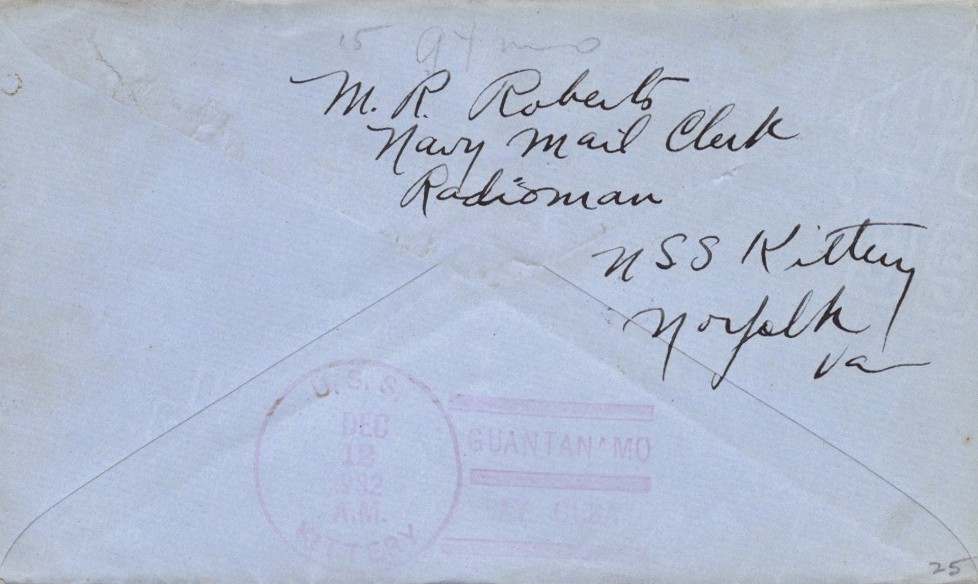 15
M. R. Roberts
Navy Mail Clerk
Radioman
USS Kittery
Norfolk
Va
U.S.S.
DEC
12
1932
A.M.
KITTERY
GUANTANAMO
BAY CUBA
25